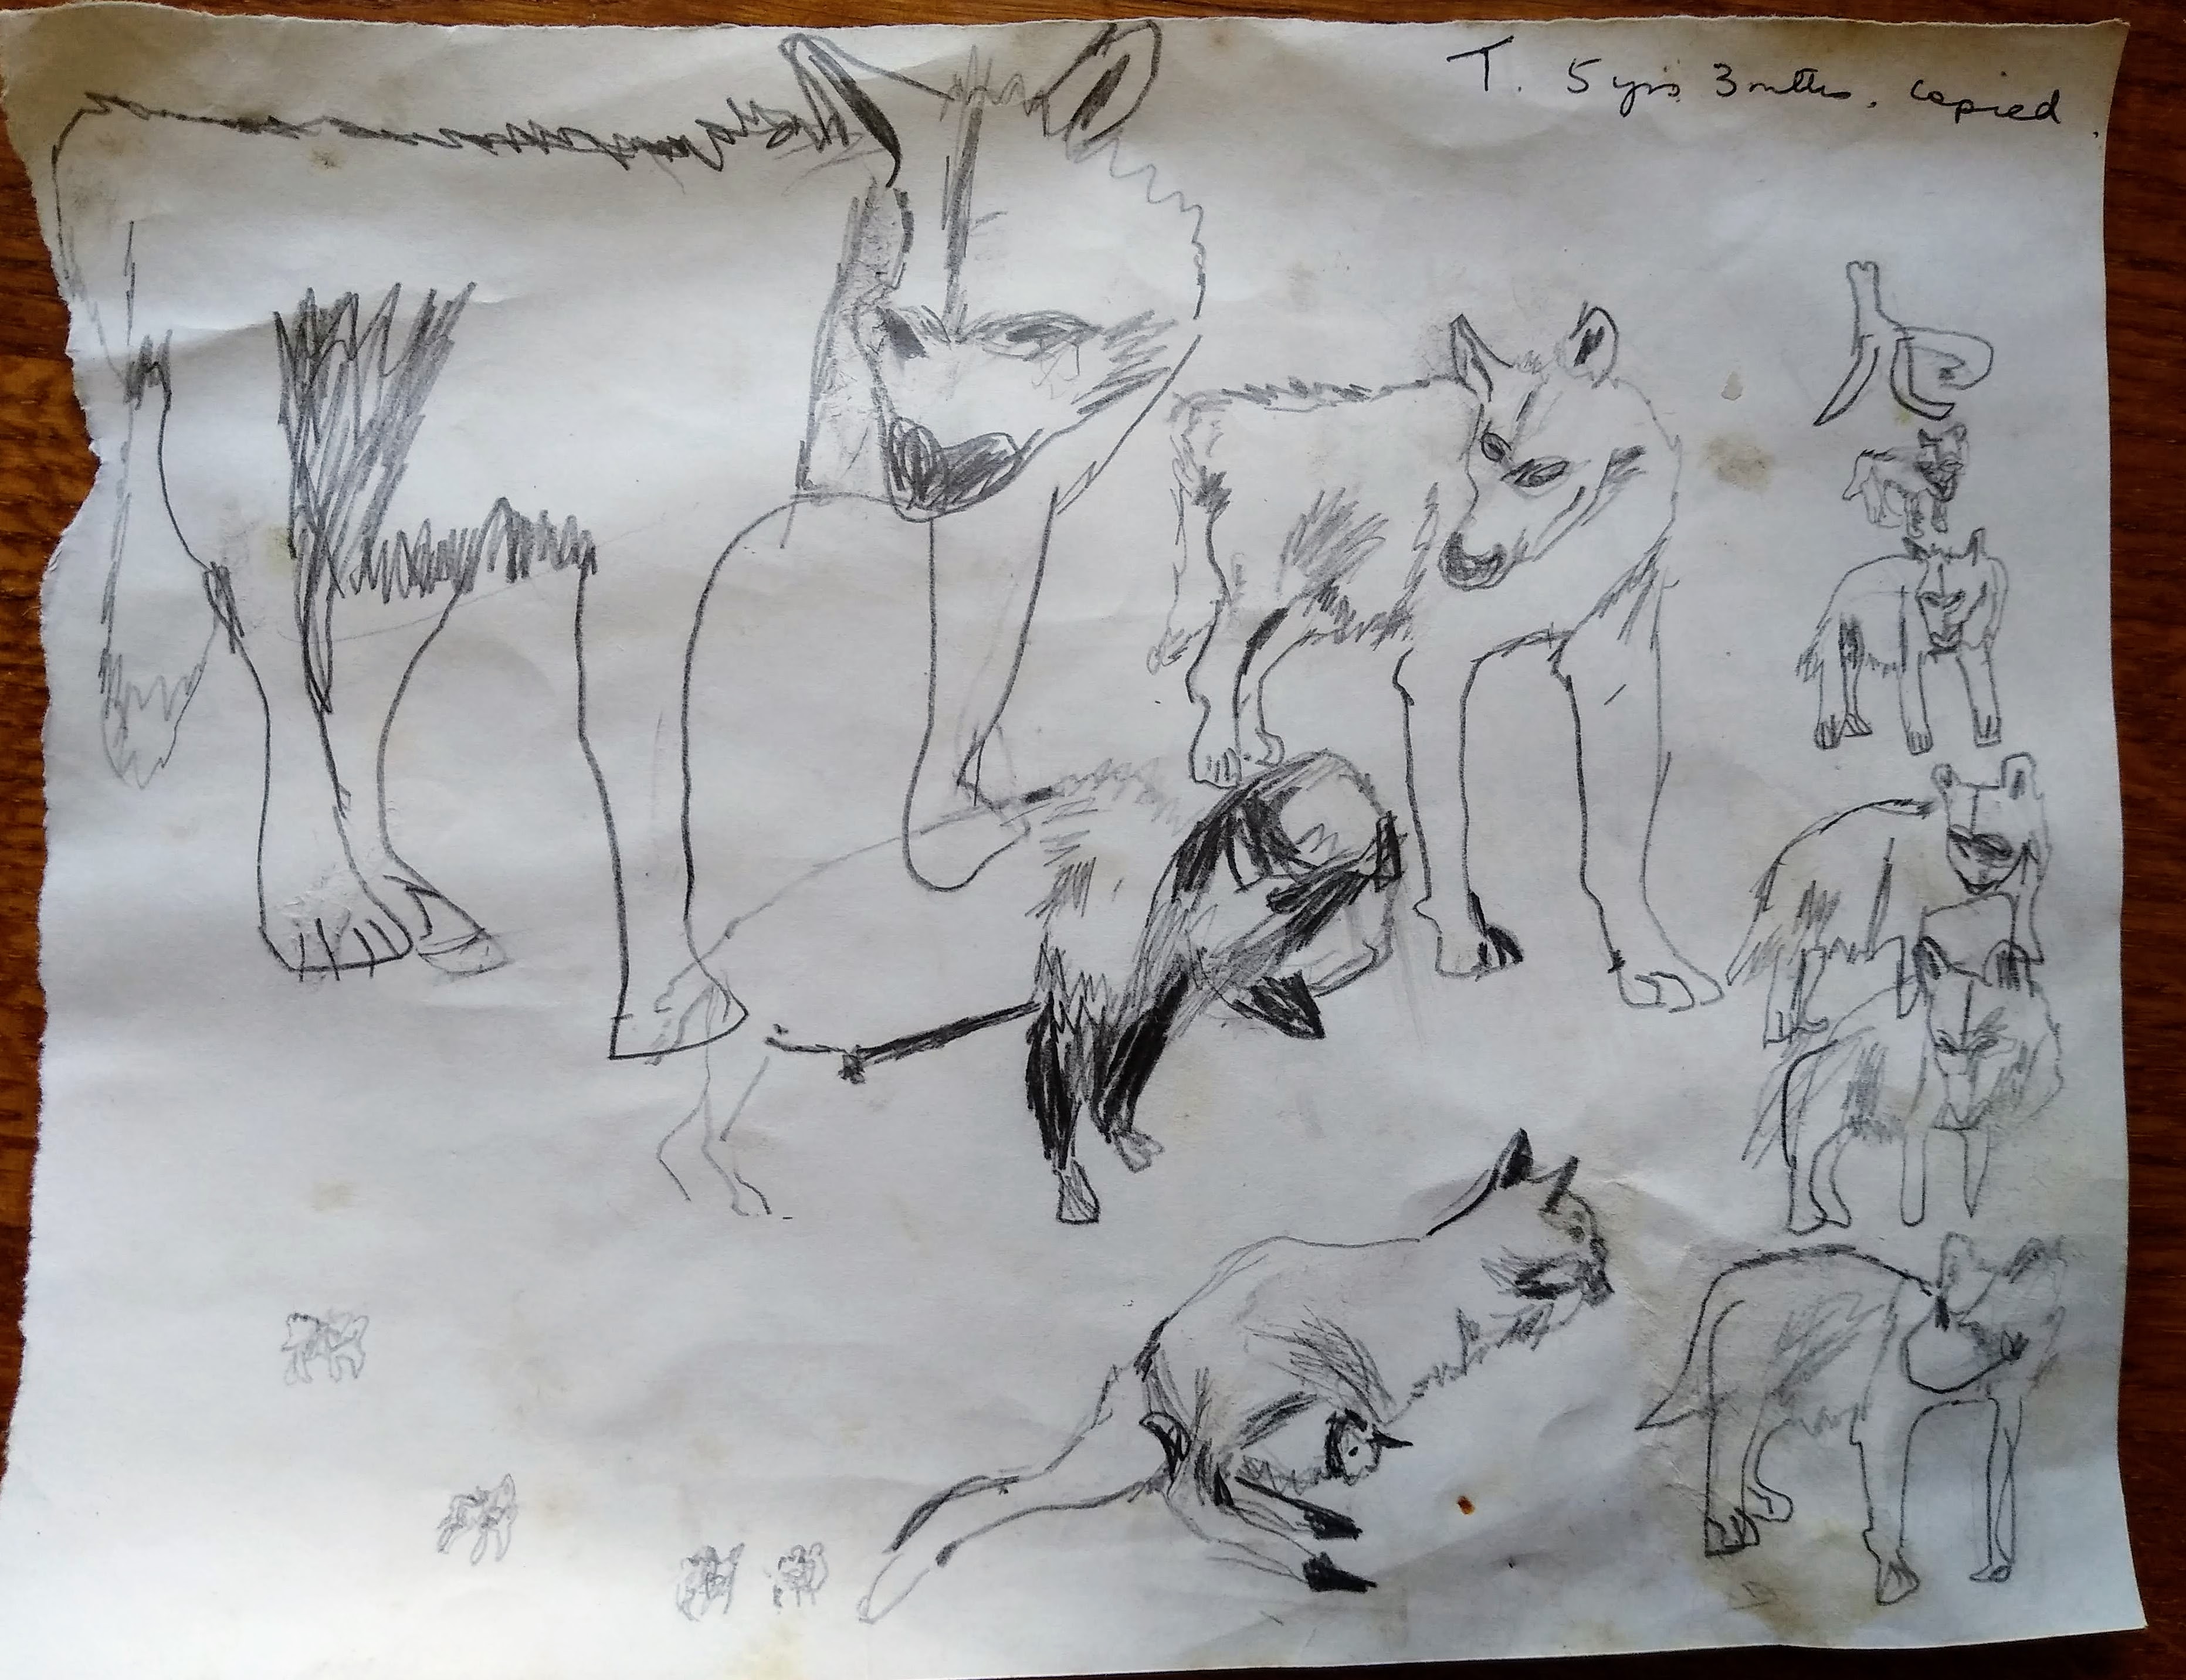 T. 5 yrs 3 mths. copied.